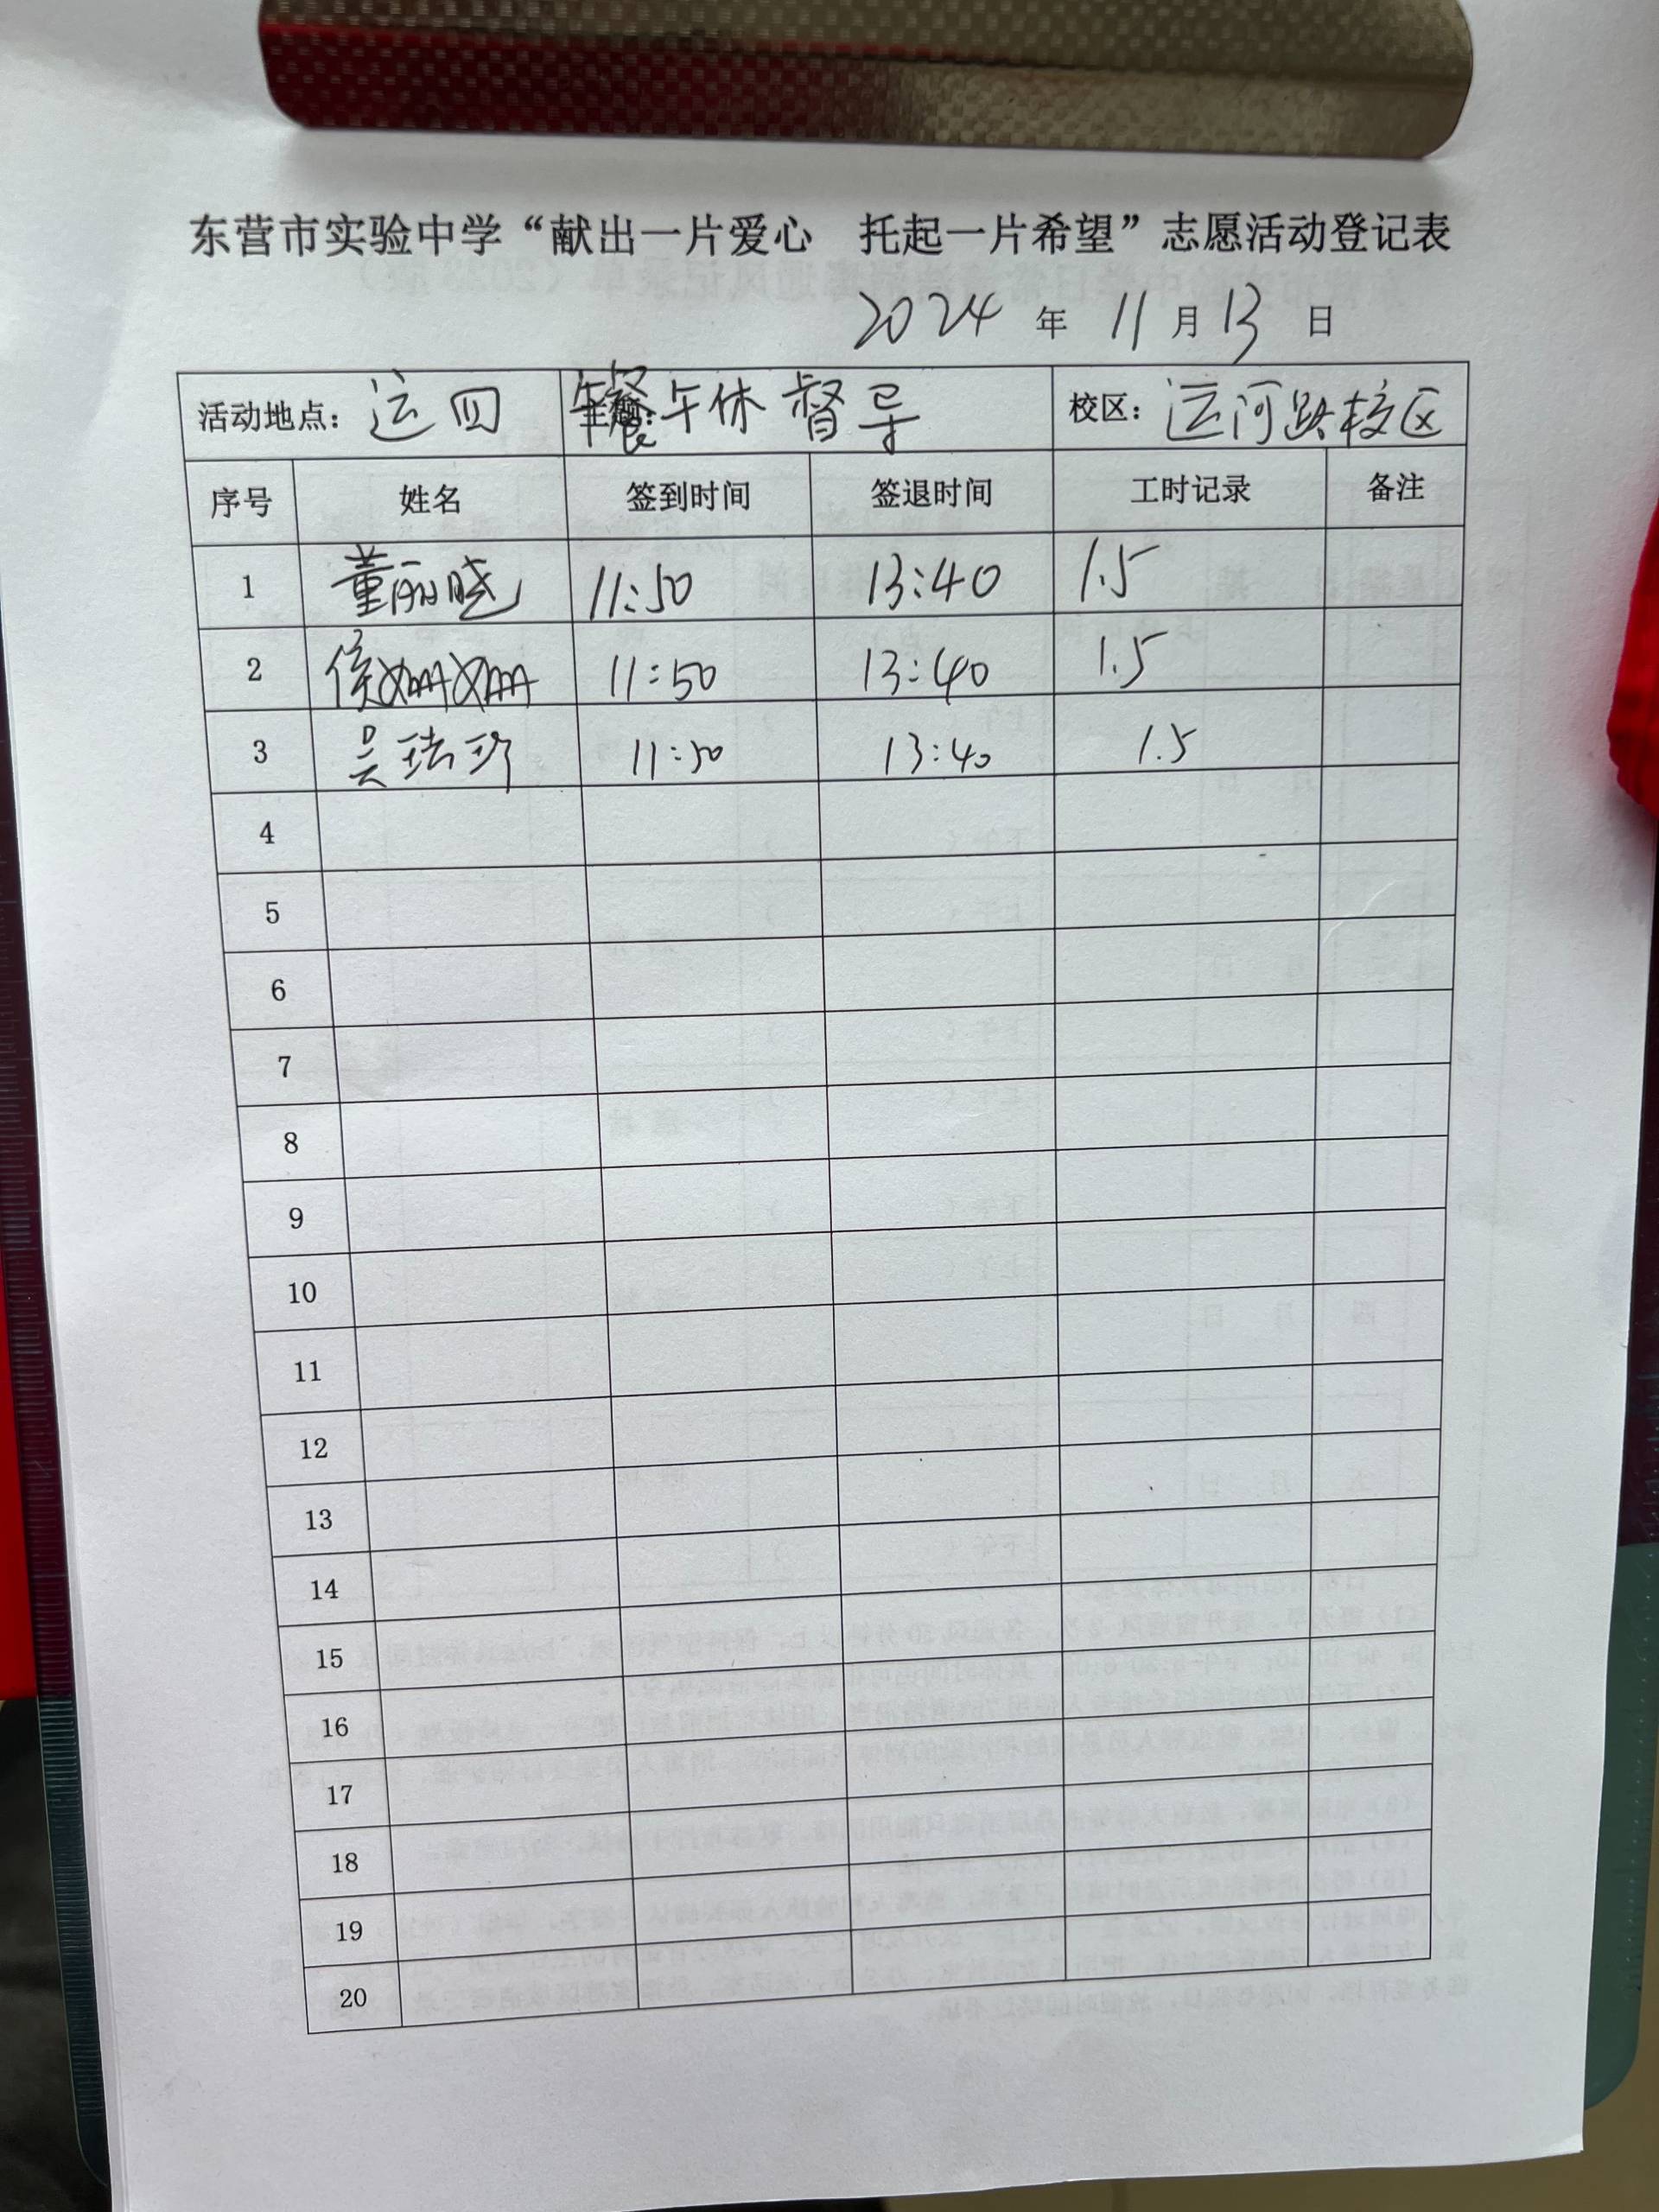 东营市实验中学“献出一片爱心 托起一片希望”志愿活动登记表
2024 年 11 月 13 日
活动地点: 运四 主题: 午餐午休督导 校区: 运河路校区
序号 姓名 签到时间 签退时间 工时记录 备注
1 董丽晓 11:50 13:40 1.5
2 侯姗姗 11:50 13:40 1.5
3 吴 11:50 13:40 1.5
4
5
6
7
8
9
10
11
12
13
14
15
16
17
18
19
20